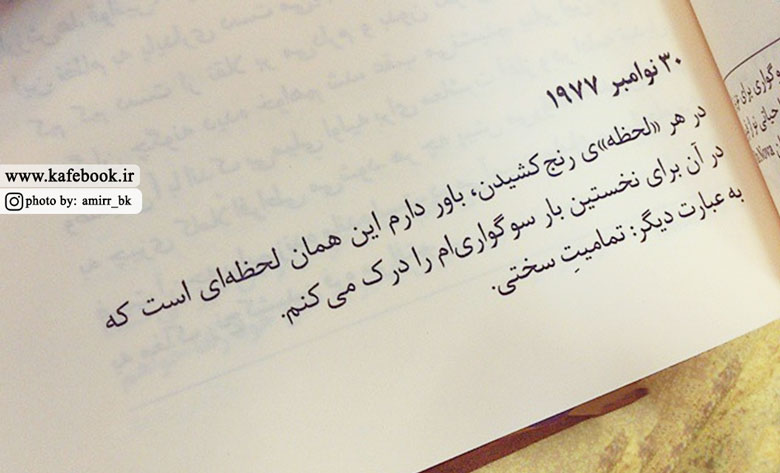 ۳۰ نوامبر ۱۹۷۷
در هر «لحظه»ی رنج کشیدن، باور دارم این همان لحظه‌ای است که
در آن برای نخستین بار سوگواری‌ام را درک می‌کنم.
به عبارت دیگر: تمامیتِ سختی.
www.kafebook.ir
photo by: amirr_bk